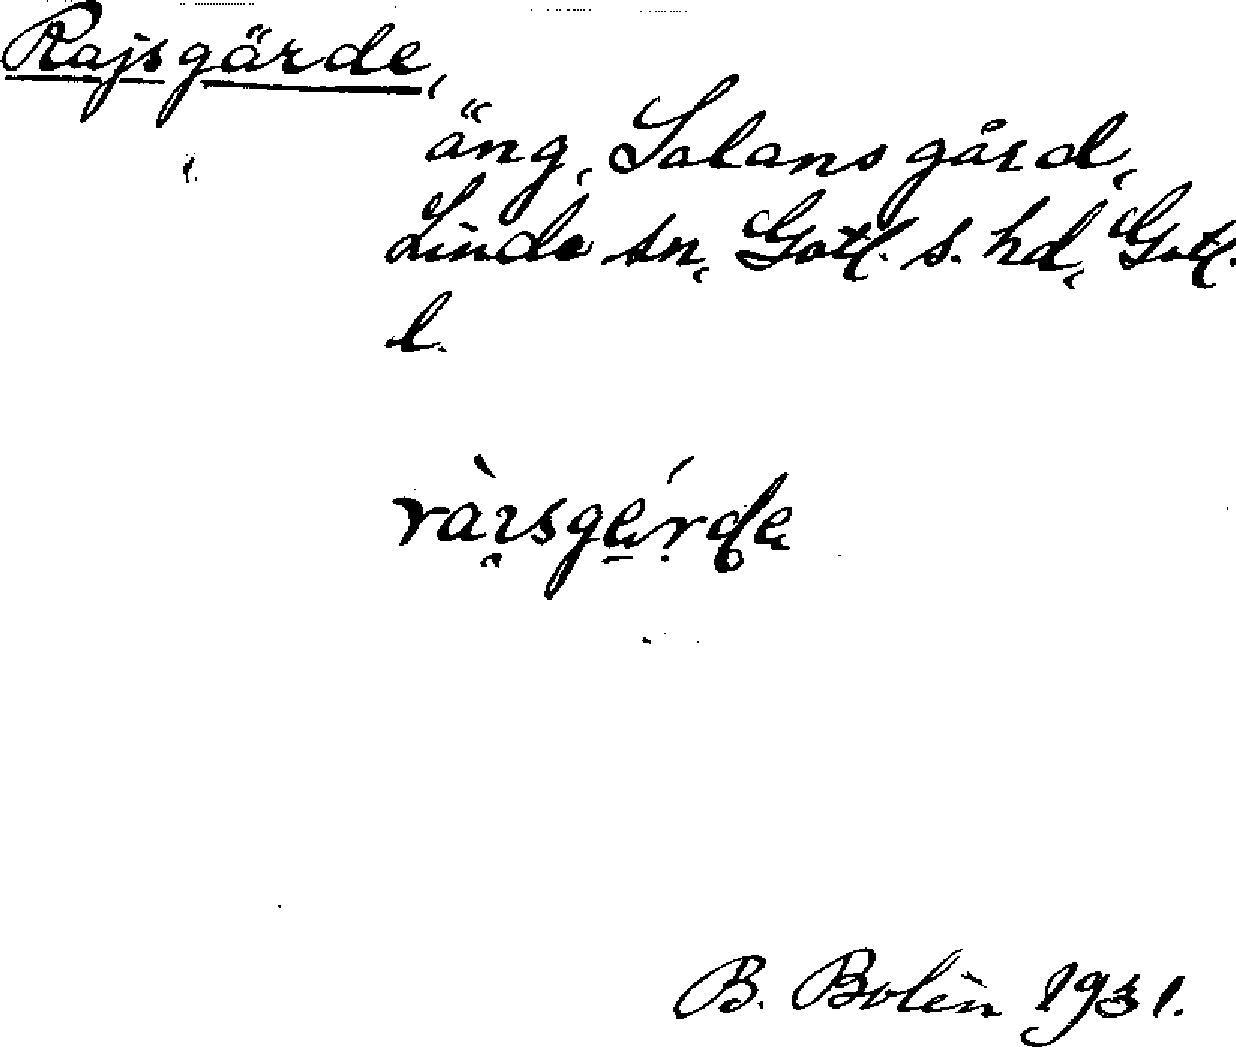 Rajsgärde,
äng, Solans gård,
Linde sn, Gotl. s. hd, Gotl.
l.
ràisgérde
B. Bolin 1931.